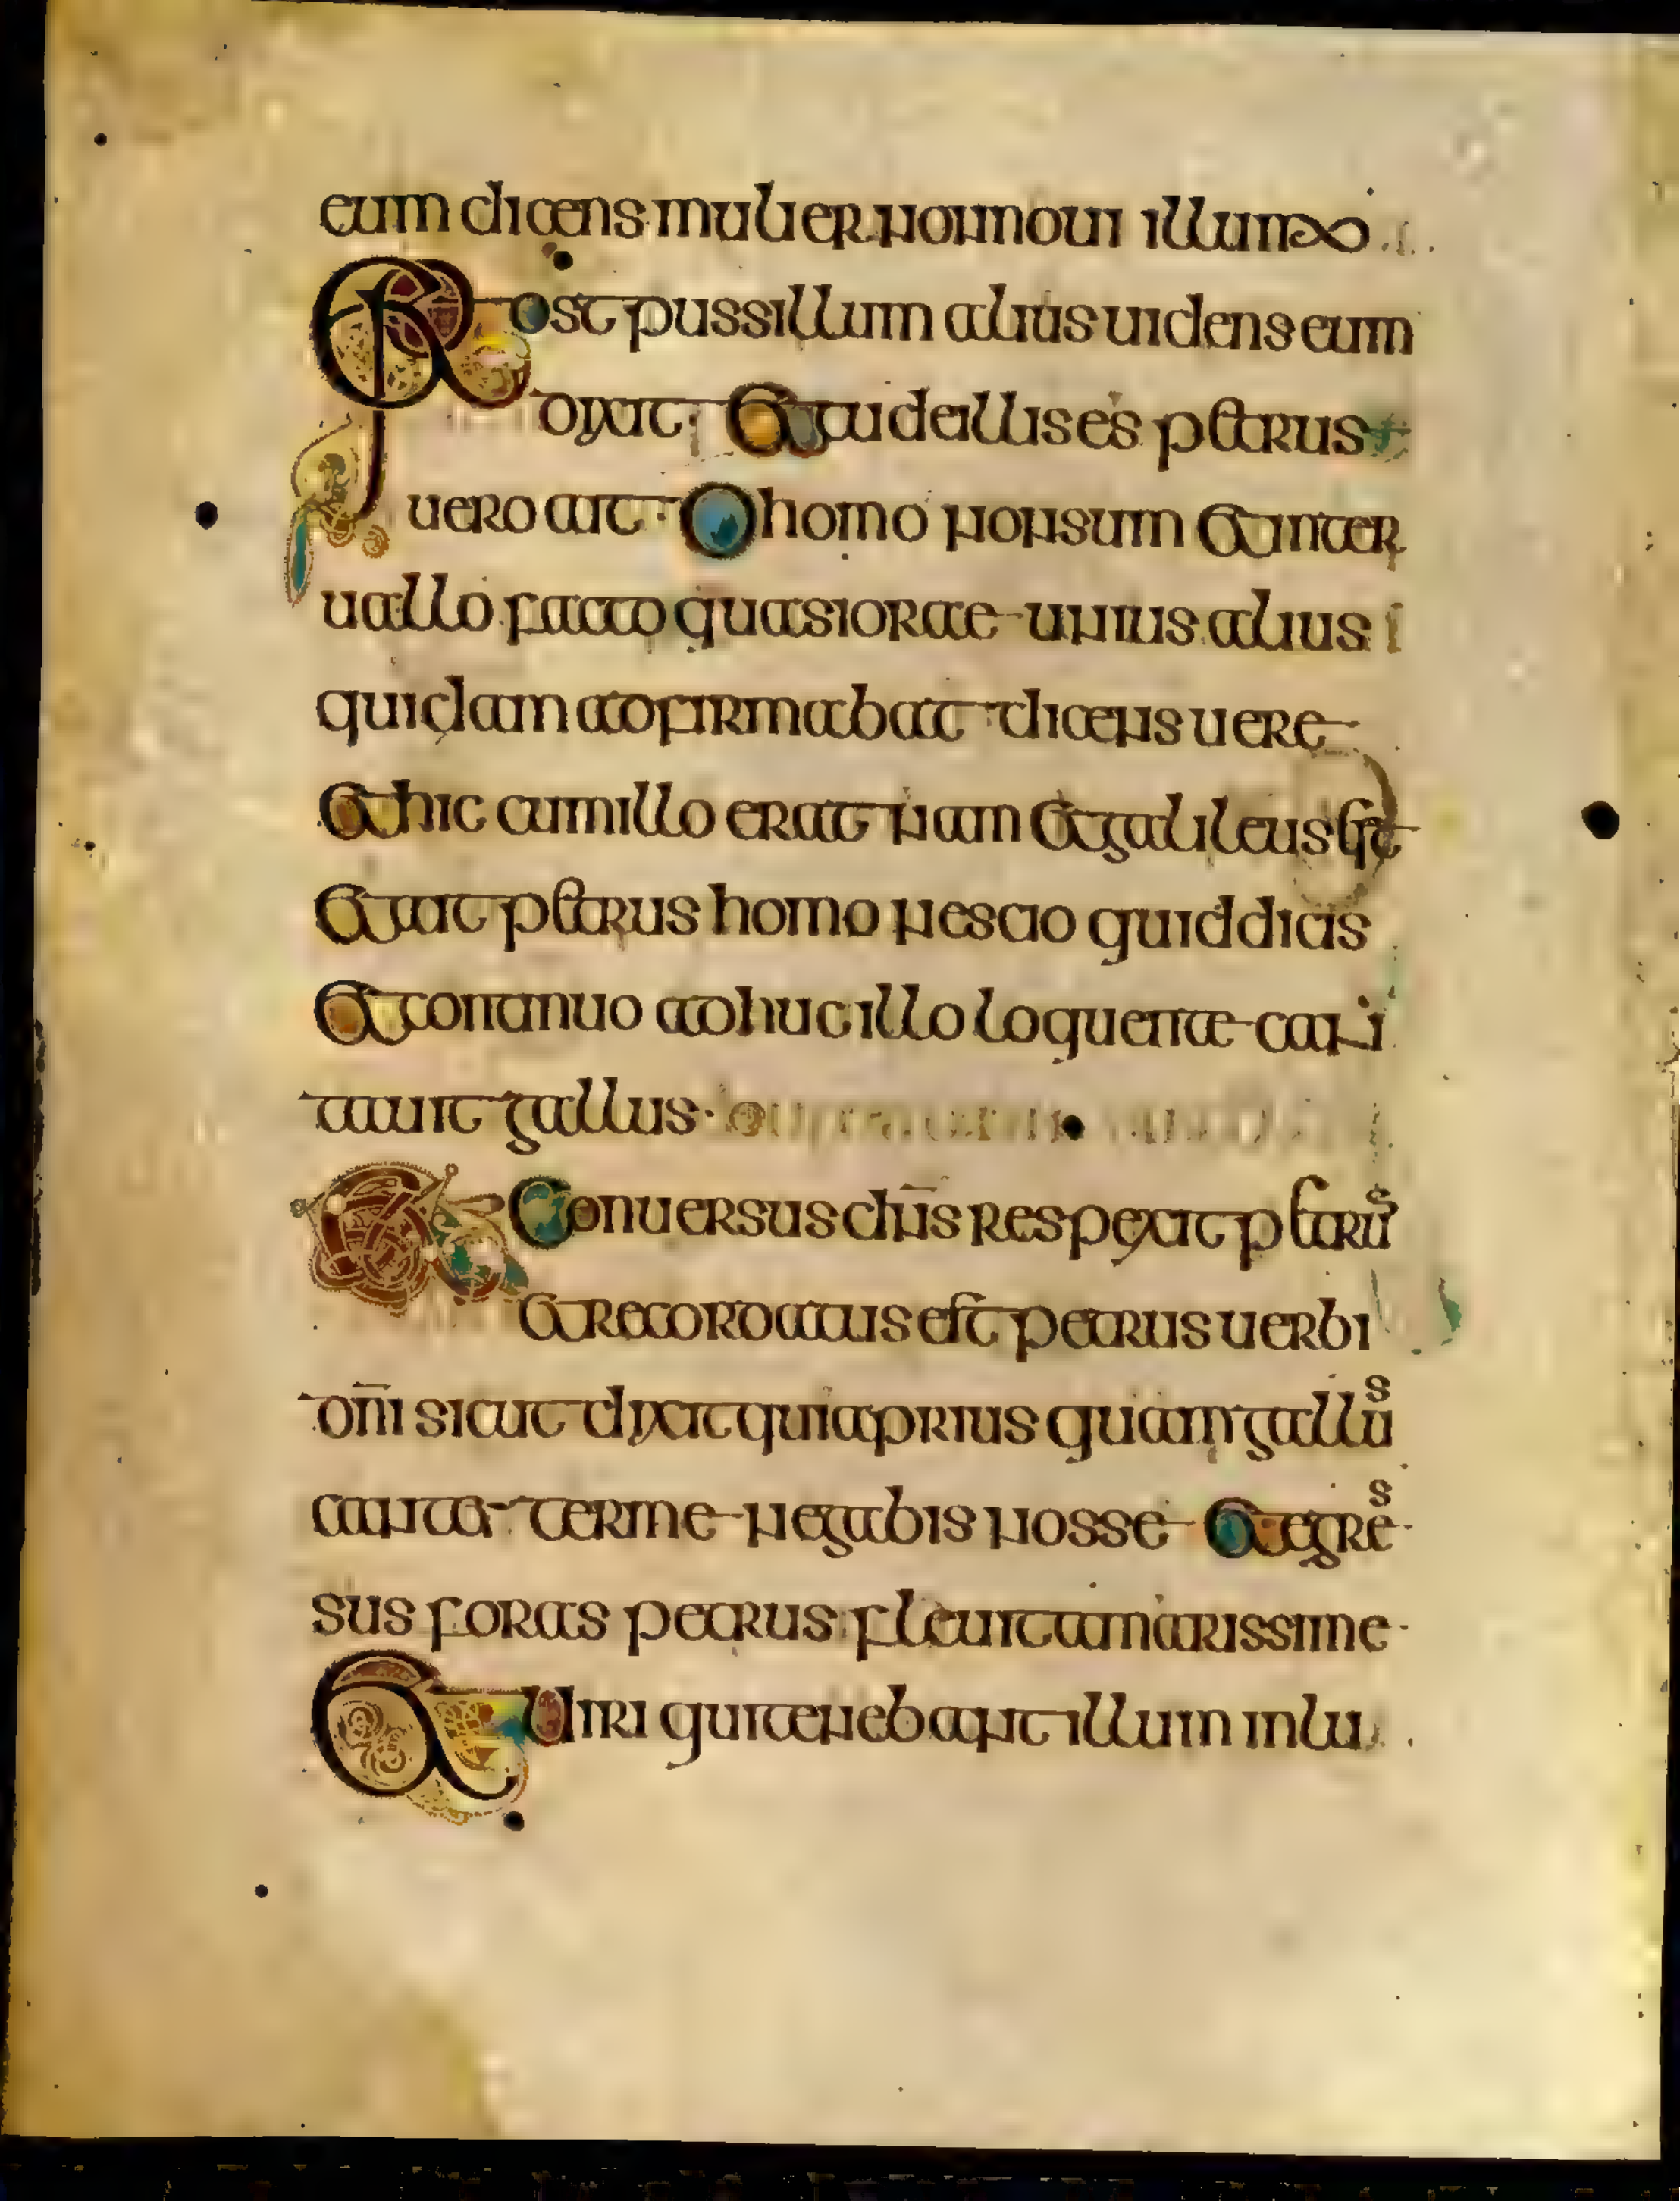 eum dicens mulier non noui illum
Et post pussillum alius uidens eum
dixit et tu de illis es petrus
uero ait O homo non sum et inter
uallo facto quasi orae unius alius
quidam adfirmabat dicens uere
et hic cum illo erat nam et galileus est
et ait petrus homo nescio quid dicis
et continuo adhuc illo loquente can
tauit gallus
Et Conuersus dn̄s respexit petrus
et recordatus est petrus uerbi
dn̄i sicut dixit quia prius quam gallus
cantet ter me negabis nosse et egres
sus foras petrus fleuit amarissime
Et Uiri qui tenebant illum inlu